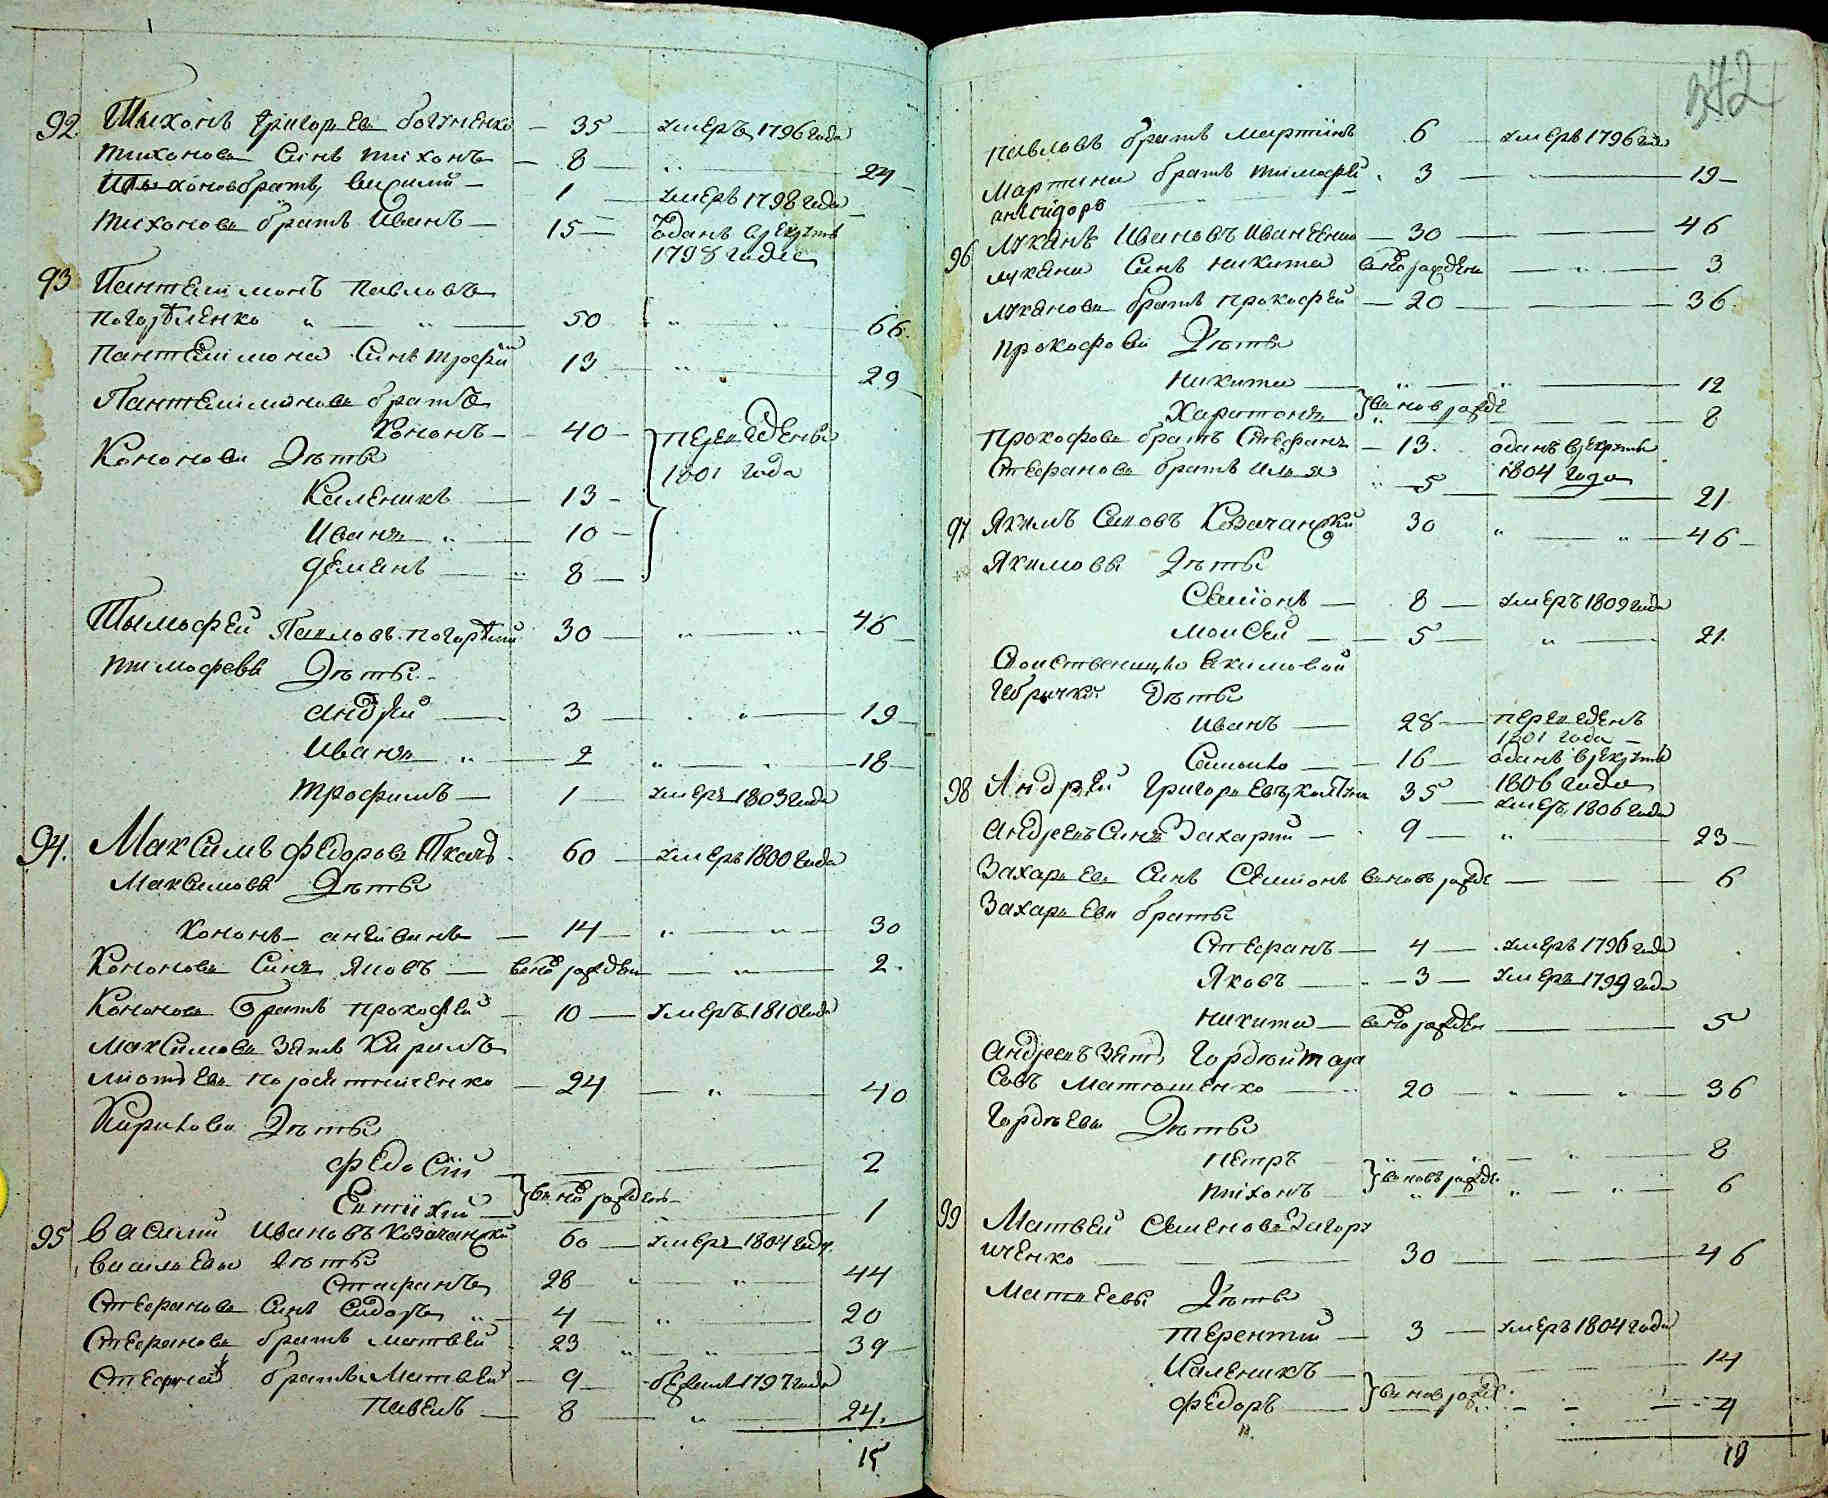 92 Тихонъ Григорьевъ Богуненко — 35 — умеръ 1796 года
Тихоновъ Синъ Тихонъ — 8 — „ — 24
братъ Василий — 1 — умеръ 1798 года
Тихоновъ братъ Иванъ — 15 — оданъ врекруты
1798 годе
93 Пантелимонъ Павловъ
Погорѣленко „ — „ — 50 „ — 66
Пантелимона Синъ Трофим 13 — „ — 29
Пантелимоновъ братъ
Кононъ — 40 — переведены
Кононови Дѣты 1801 года
Каленикъ — 13 —
Иванъ „ — 10 —
Демянъ — „ 8 —
Тымофей Павловъ Погорѣлий 30 — „ — „ — 46
Тимофеевы Дѣты
Андрей — 3 — „ — 19
Иванъ „ — 2 — „ — „ — 18
Трофимъ — 1 — умеръ 1803 года
94. Максимъ Федоровъ Ткачъ 60 — умеръ 1800 года
Максимовы Дѣты
Кононъ — — 14 — „ — „ — 30
Кононовъ Синъ Яковъ — вновъ рожденъ — „ — 2.
Кононовъ Братъ Прокофей — 10 — умеръ 1810 года
Максимовъ Зять Кирилъ
— 24 — „ — 40
Кирилови Дѣты
Федосій — — 2
Евтихий — } вновъ рожденъ — 1
95 Василий Ивановъ Козачанский 60 — умеръ 1804 году.
Васильеви Дѣты
Стефанъ 28 „ — „ — 44
Стефановъ Синъ Сидоръ „ — 4 — „ — 20
Стефановъ братъ Матвей — 23 „ — „ — 39
братъ Матвей — 9 — бежалъ 1797 года
Павелъ — 8 — „ — 24.
15
342
Павловъ братъ Мартинъ 6 — умеръ 1796 года
Мартина братъ Тимофей . 3 — „ — 19
анъсидоръ
96 Луканъ Ивановъ Иваненко — 30 — — 46
Лукани Синъ Никита вново рожденъ — „ — 3
Лукановъ братъ Прокофей — 20 — — 36
Прокофови Дѣты
Никита — „ — „ — 12
Харитонъ — } вновъ рожде — 8
Прокофовъ братъ Стефанъ — 13. оданъ врекруты
Стефановъ братъ Илья „ — 5 — 1804 года — 21
97 Якимъ Козачанский 30 „ — „ — 46 —
Якимовы Дѣты
Семионъ — 8 — умеръ 1809 года
Моисей — — 5 — „ — 21.
Якимовой
Дѣты
Иванъ — 28 — переведенъ
1801 года —
Самойло — — 16 — оданъ врекруты
1806 года
98 Андрей Григорьевъ 35 — умеръ 1806 года
Андреевъ Синъ Захарий — 9 — „ — 23 —
Захарьевъ Синъ Семионъ вновъ рожде — — 6
Захарьеви братьи
Стефанъ — 4 — умеръ 1796 года
Яковъ — — 3 — умеръ 1799 года
Никита — вново рожден — — 5
Андреевъ Зять Гордюй Тара
совъ Матюшенко — 20 — „ — „ — 36
Гордѣеви Дѣты
Петръ „ — „ — „ — 8
Тихонъ } вновъ рожде. „ — „ — 6
99 Матвей Семеновъ Загору
йченко — — — 30 — — — 46
Матвеевы Дѣты
Терентий — 3 — умеръ 1804 года
Каленикъ — — 14
Федоръ — } вновъ рожде — — 4
18